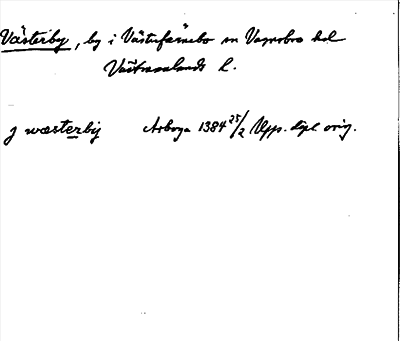 Västerby, by i Västerfärnebo sn Vagnsbro hd
Västmanlands l.
j wæsterbij Arboga 1384 25/2 Upps. dipl. orig.